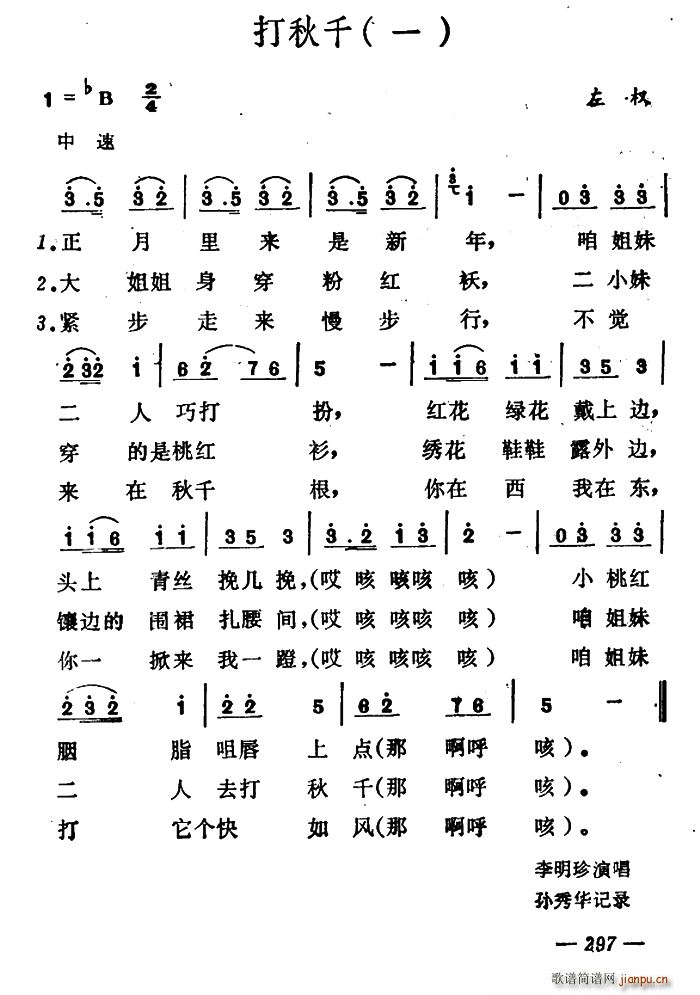 打秋千(一)
1=♭B 2/4 左权
中速
3.5 3 2 | 3.5 3 2 | 3.5 3 2 | 1 - | 0 3 3 3 |
1.正月里来是新年, 咱姐妹
2.大姐姐身穿粉红袄, 二小妹
3.紧步走来慢步行, 不觉
2 3 2 1 | 6 2 7 6 | 5 - | 1 1 6 1 1 | 3 5 3 |
二人巧打扮, 红花绿花戴上边,
穿的是桃红衫, 绣花鞋鞋露外边,
来在秋千根, 你在西我在东,
1 1 6 1 1 | 3 5 3 | 3.2 1 3 | 2 - | 0 3 3 3 |
头上青丝挽几挽,(哎咳咳咳咳) 小桃红
镶边的围裙扎腰间,(哎咳咳咳咳) 咱姐妹
你一掀来我一蹬,(哎咳咳咳咳) 咱姐妹
2 3 2 1 | 2 2 5 | 6 2 7 6 | 5 - ‖
胭脂咀唇上点(那啊呼咳)。
二人去打秋千(那啊呼咳)。
打它个快如风(那啊呼咳)。
李明珍演唱
孙秀华记录
— 297 —
歌谱简谱网
jianpu.cn